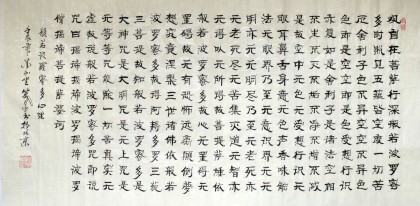 觀自在菩薩行深般若波羅蜜
多時照見五蘊皆空度一切苦
厄舍利子色不異空空不異色
色即是空空即是色受想行識
亦復如是舍利子是諸法空相
不生不滅不垢不淨不增不減
是故空中无色无受想行識无
眼耳鼻舌身意无色聲香味觸
法无眼界乃至无意識界无无
明亦无无明盡乃至无老死亦
无老死盡无苦集滅道无智亦
无得以无所得故菩提薩埵依
般若波羅蜜多故心无罣礙无
罣礙故无有恐怖遠離顛倒夢
想究竟涅槃三世諸佛依般若
波羅蜜多故得阿耨多羅三藐
三菩提故知般若波羅蜜多是
大神咒是大明咒是无上咒是
无等等咒能除一切苦真實不
虛故說般若波羅蜜多咒即說
咒曰揭諦揭諦波羅揭諦波羅
僧揭諦菩提薩婆訶
般若波羅蜜多心經